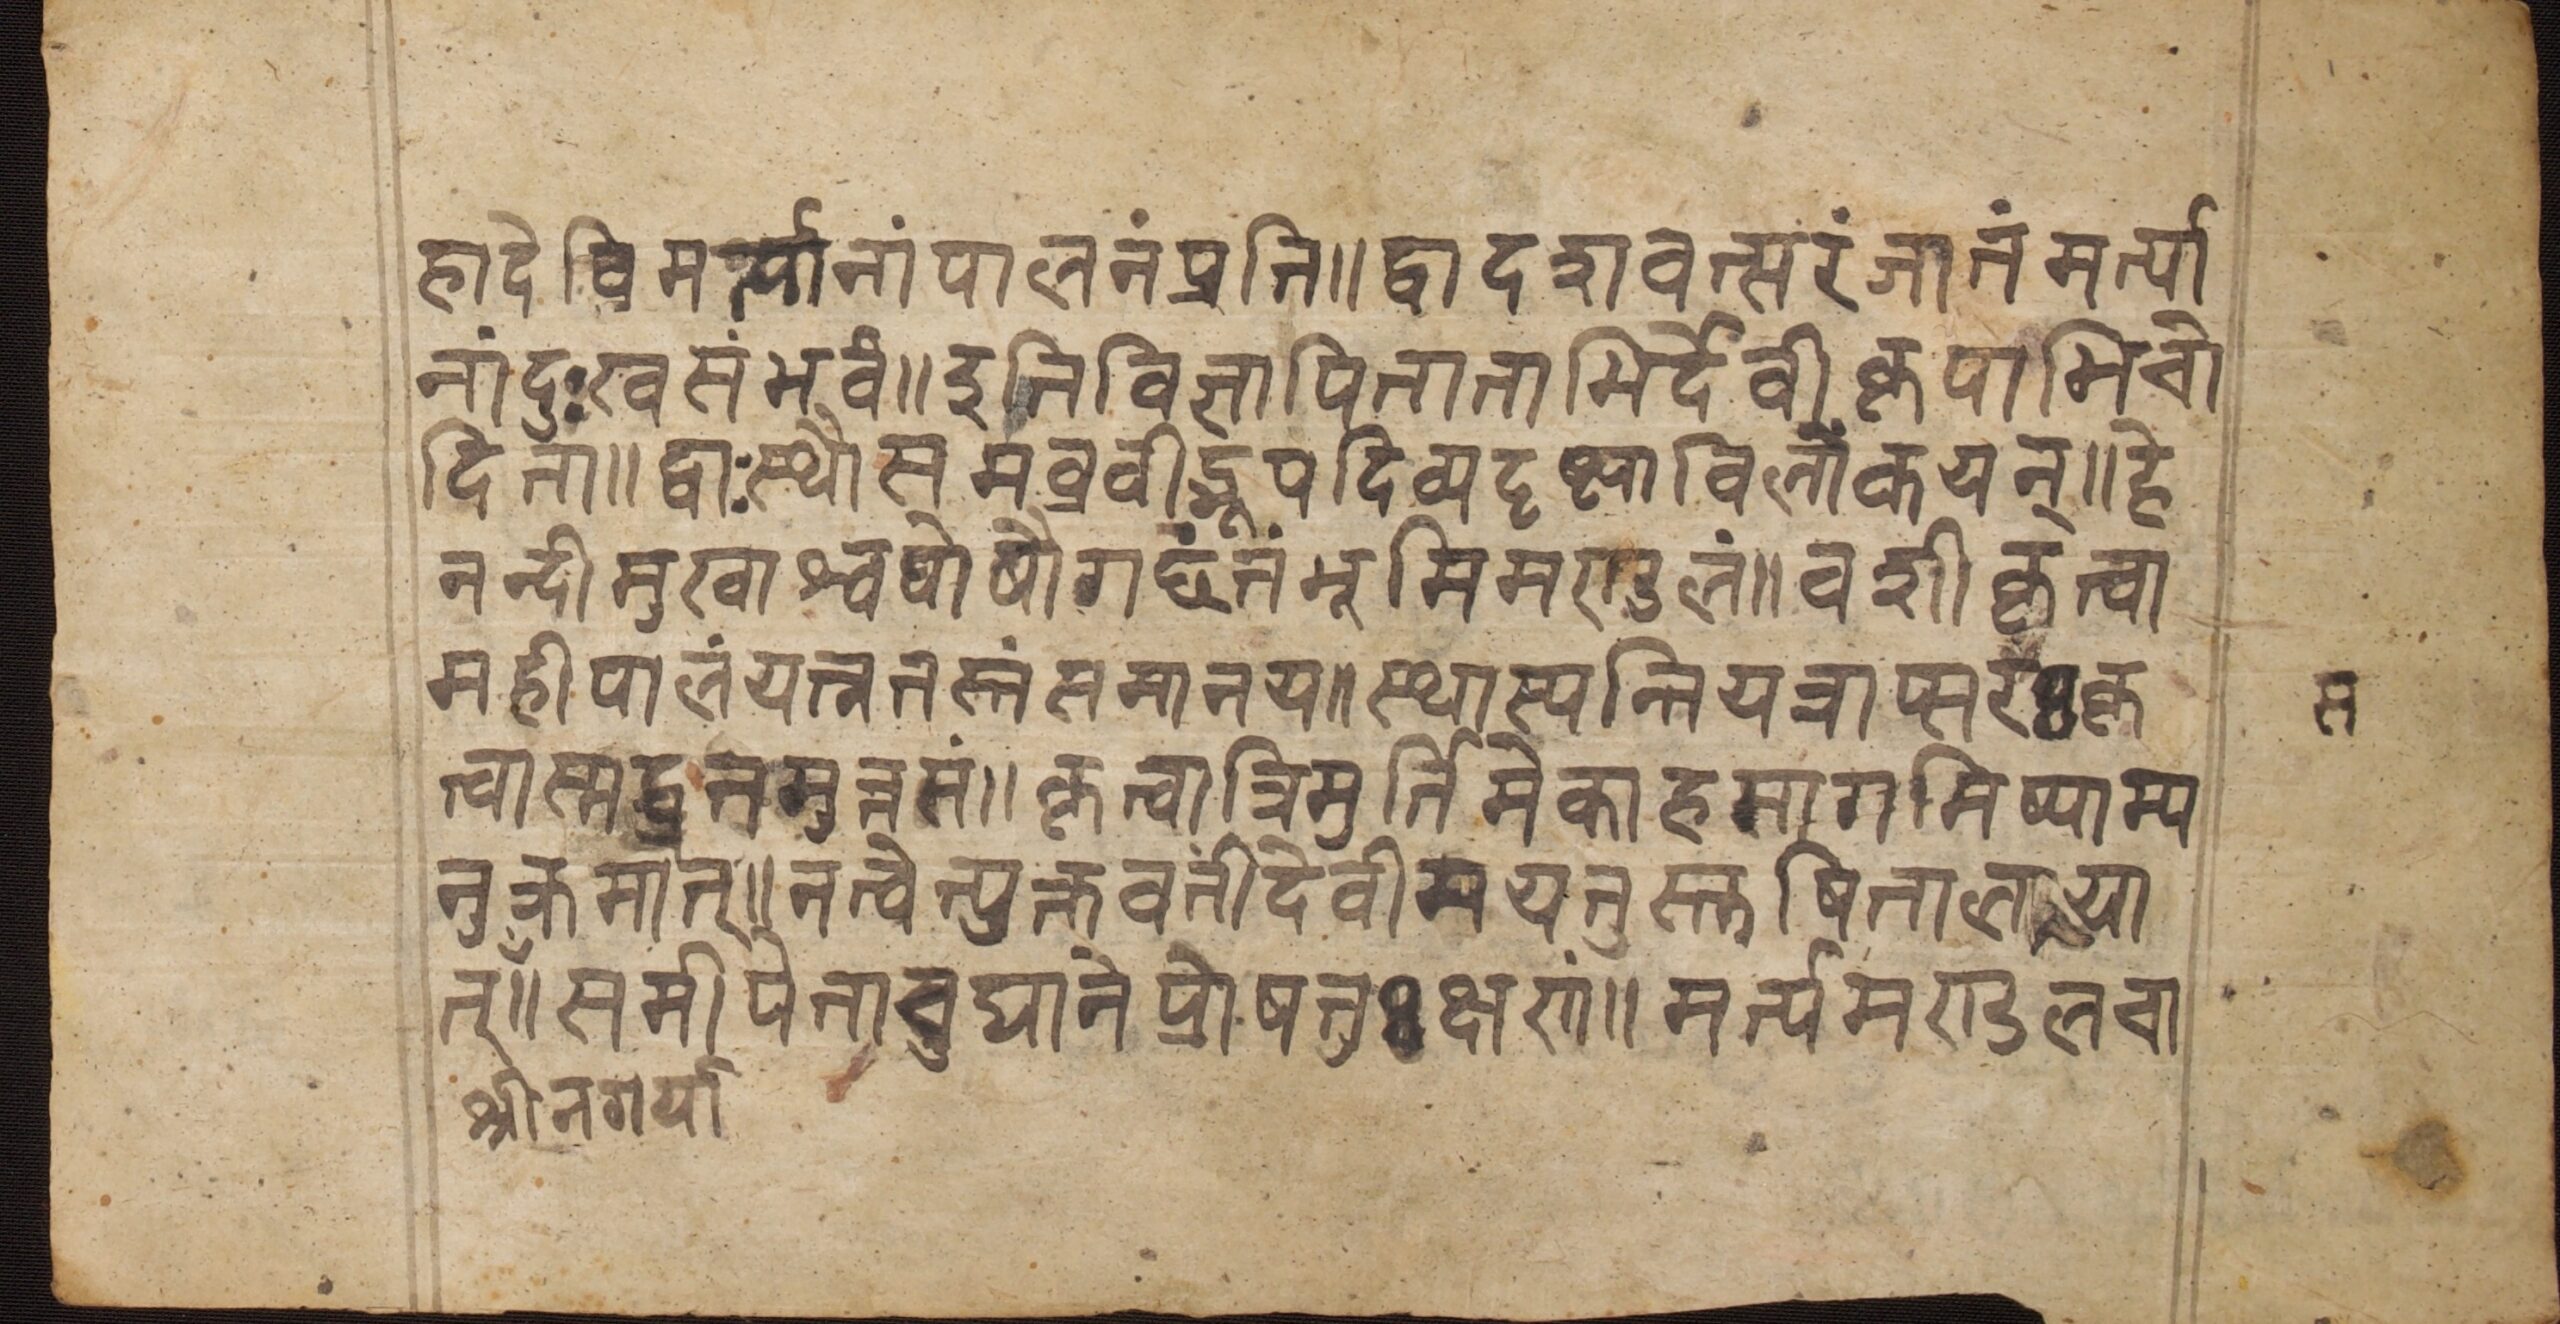 हादेविमर्त्यानांपालनंप्रति॥द्वादशवत्सरंजातंमर्त्या
नांदुःखसंभवं॥इतिविज्ञापितानाभिर्देवीकृपाभिचो
दिता॥द्वाःस्थौसमब्रवीद्भूपदिव्यदृष्ट्याविलोकयन्॥हे
नन्दीमुखाश्वघोषौगछंतंभूमिमण्डलं॥वशीकृत्वा
महीपालंयत्नतस्तंसमानय॥स्थास्यन्तियत्राप्सरःकृ
त्वास्मद्व्रतमुत्तमं॥कृत्वात्रिमुर्तिमेकाहमागमिष्याम्य
नुक्रमात्॥तत्वेत्युक्तवतींदेवीमयतुस्तृषितालया
त्॥समीपेतावुद्यानेप्रोषतुःक्षणं॥मर्त्यमण्डलचा
श्रीनगर्या
म